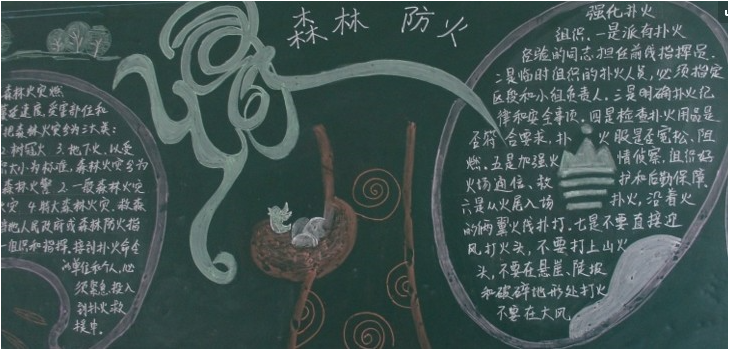 森林 防火
森林火灾燃
蔓延速度,受害部位和
把森林火灾分为三大类:
2.树冠火 3.地下火,以受
积大小为标准,森林火灾分为
森林火警 2.一般森林火灾
火灾 4.特大森林火灾 救森
当地人民政府或森林防火指
一组织和指挥,接到扑火命令
的单位和个人,必
须紧急投入
到扑火救
援中。
强化扑火
组织。一是派有扑火
经验的同志担任前线指挥员。
二是临时组织的扑火人员,必须指定
区段和小组负责人。三是明确扑火纪
律和安全事项。四是检查扑火用品是
否符合要求,扑火服是否宽松、阻
燃。五是加强火情侦察,组织好
火场通信、救护和后勤保障。
六是从火尾入场扑火,沿着火
的两翼火线扑打。七是不要直接迎
风打火头,不要打上山火
头,不要在悬崖、陡坡
和破碎地形处打火
不要在大风